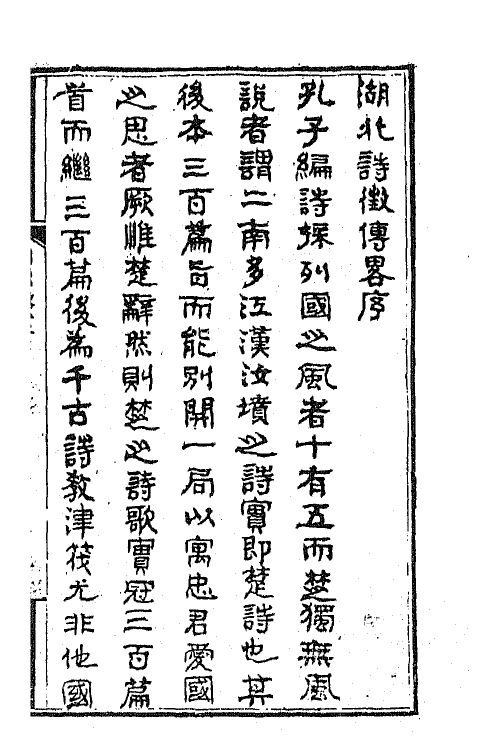 湖北詩徵傳畧序
孔子編詩採列國之風者十有五而楚獨無風
說者謂二南多江漢汝墳之詩實即楚詩也其
後本三百篇旨而能別開一局以寓忠君愛國
之思者厥惟楚辭然則楚之詩歌實冠三百篇
首而繼三百篇後為千古詩教津筏尤非他國